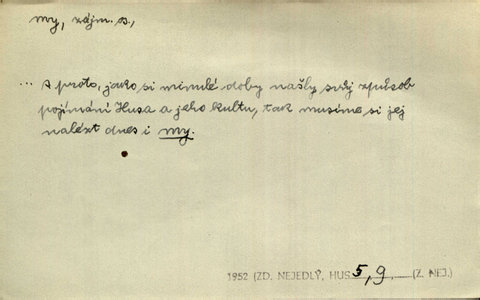 my, zájm. s.,
... A proto, jako si minulé doby našly svůj způsob
pojímání Husa a jeho kultu, tak musíme si jej
nalézt dnes i my.
1952 (ZD. NEJEDLÝ, HUS 5, 9. (Z. NEJ.)